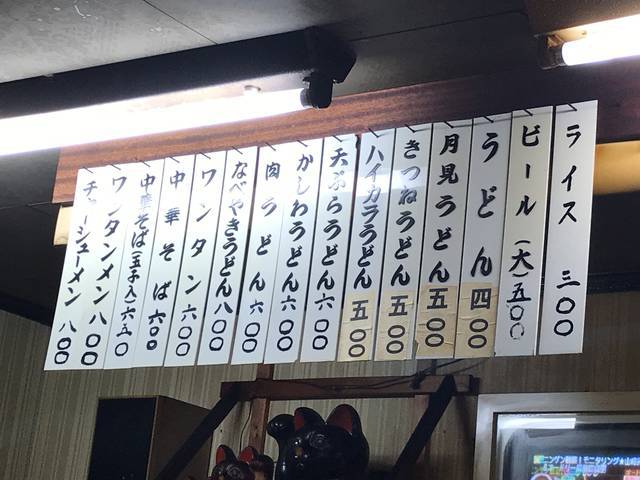 ライス 三〇〇
ビール(大)五〇〇
うどん 四〇〇
月見うどん 五〇〇
きつねうどん 五〇〇
ハイカラうどん 五〇〇
天ぷらうどん 六〇〇
かしわうどん 六〇〇
肉うどん 六〇〇
なべやきうどん 八〇〇
ワンタン 六〇〇
中華そば 六〇〇
中華そば(玉子入)六五〇
ワンタンメン 八〇〇
チャーシューメン 八〇〇
ニンゲン観察!モニタリング★山